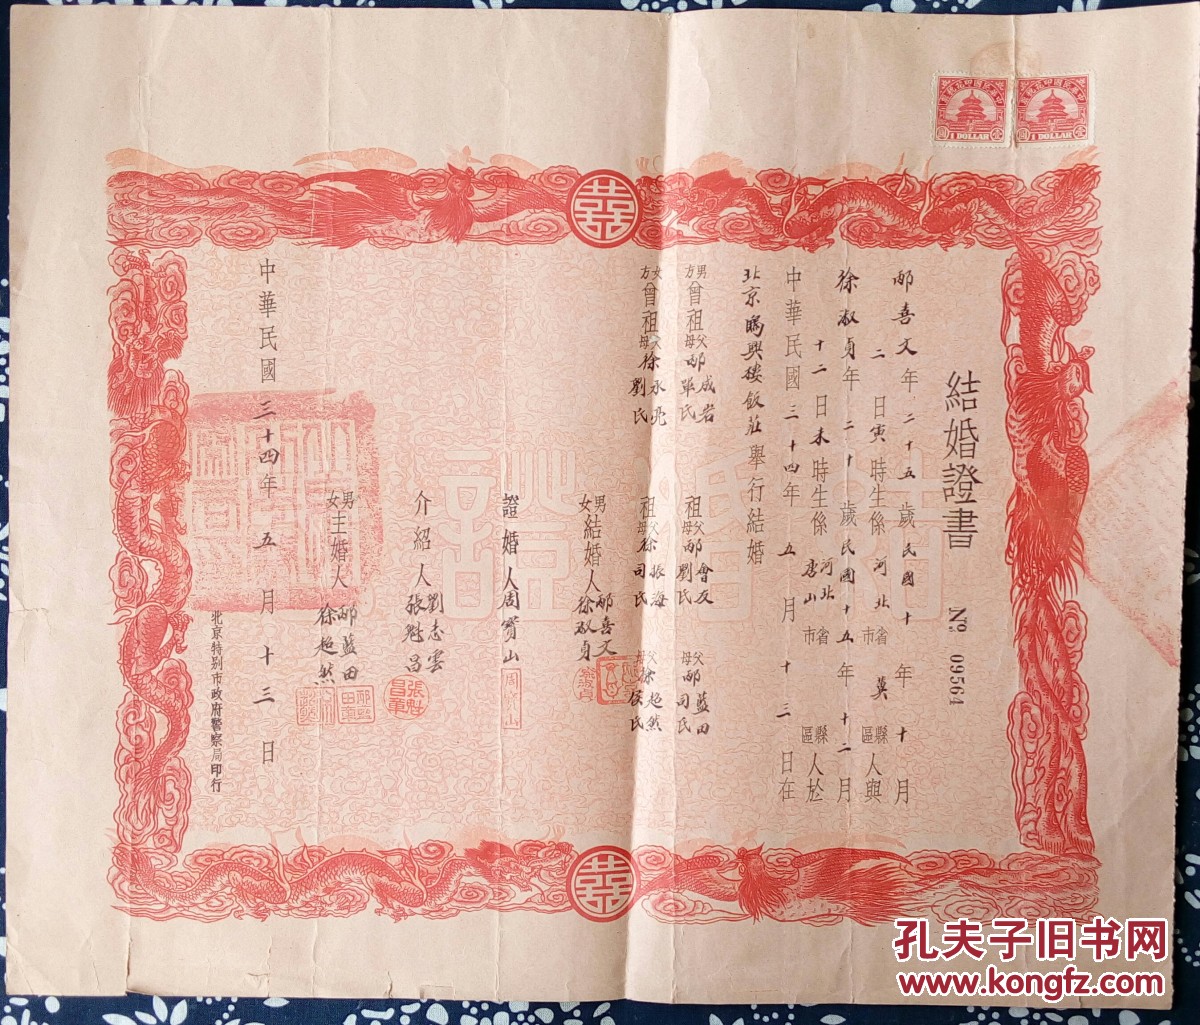 結婚證書
Nº 09564
邮喜文年二十五歲民國十年十月
二日寅時生係河北省市莫縣區人與
徐淑貞年二十歲民國十五年十二月
十二日未時生係河北省唐山市縣區人於
中華民國三十四年五月十三日在
北京鴻興樓飯莊舉行結婚
男方曾祖父母邮成岩單氏
祖父母邮會友劉氏
父母邮藍田司氏
女方曾祖父母徐永亮劉氏
祖父母徐振海司氏
父母徐超然侯氏
男女結婚人邮喜文徐淑貞
證婚人周寶山
周寶山
介紹人劉志雲張魁昌
張魁昌章
男女主婚人邮藍田徐超然
中華民國三十四年五月十三日
北京特別市政府警察局印行
結婚證
囍
囍
1 DOLLAR
1 DOLLAR
孔夫子旧书网
www.kongfz.com